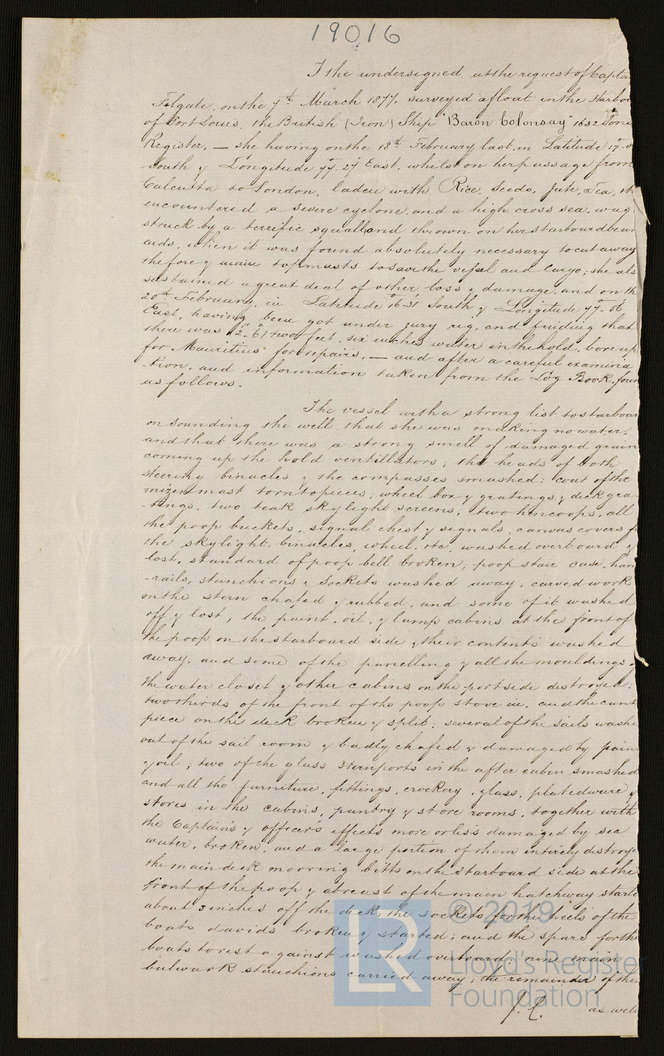 19016
I the undersigned, at the request of Capta
Filgate, on the 7th March 1877, surveyed afloat in the Harbou
of Port Louis, the British (Iron) Ship "Baron Colonsay" 1682 Tons
Register, — she having on the 18th February last, in Latitude 17
South & Longitude 77. 27 East, whilst on her passage from
Calcutta to London, laden with Rice, Seeds, Jute, Tea,
encountered a severe cyclone, and a high cross sea, was
struck by a terrific squall and thrown on her starboard beam
ends, when it was found absolutely necessary to cut away
the fore & main topmasts to save the vessel and Cargo; she als
sustained a great deal of other loss & damage, and on th
20th February, in Latitude 16.31 South, & Longitude 77. 6
East, having been got under jury rig, and finding that
there was (2. 6) two feet, six inches water in the hold, bore up
for Mauritius for repairs, — and after a careful examina
-tion, and information taken from the Log Book, foun
as follows.
The vessel with a strong list to starboar
on sounding the well, that she was making no water,
and that there was a strong smell of damaged grain
coming up the hold ventilators; the heads of both
steering binacles & the compasses smashed: coat of the
mizen mast torn to pieces, wheel box & gratings, & deck gra
-tings, two teak skylight screens, two hencoops, all
the poop buckets, signal chest & signals, canvas covers f
the skylight, binacles, wheel, etc, washed overboard &
lost, standard of poop bell broken, poop stair case, han
-rails, stanchions & sockets washed away, carved work
on the stern chafed & rubbed, and some of it washed
off & lost, the paint, oil, & lamp cabins at the front of
the poop on the starboard side & their contents washed
away, and some of the panelling & all the mouldings
the water closet & other cabins on the port side destroyed.
two thirds of the front of the poop stove in, and the cant
piece on the deck broken & split, several of the sails washe
out of the sail room & badly chafed & damaged by pain
& oil; two of the glass sternports in the after cabin smashed
and all the furniture, fittings, crockery, glass, platedware &
stores in the cabins, pantry & store rooms, together with
the Captain's & officer's effects more or less damaged by sea
water, broken, and a large portion of them entirely destroye
the main deck mooring bitts on the starboard side at the
front of the poop & abreast of the main hatchway starte
about 3 inches off the deck, the sockets for the heels of the
boats davids broken & started; and the spars for the
boats to rest against washed overboard, nine main
bulwark stanchions carried away; the remainder of them
J. C. as well
© 2019
Lloyd's Register
Foundation
LR